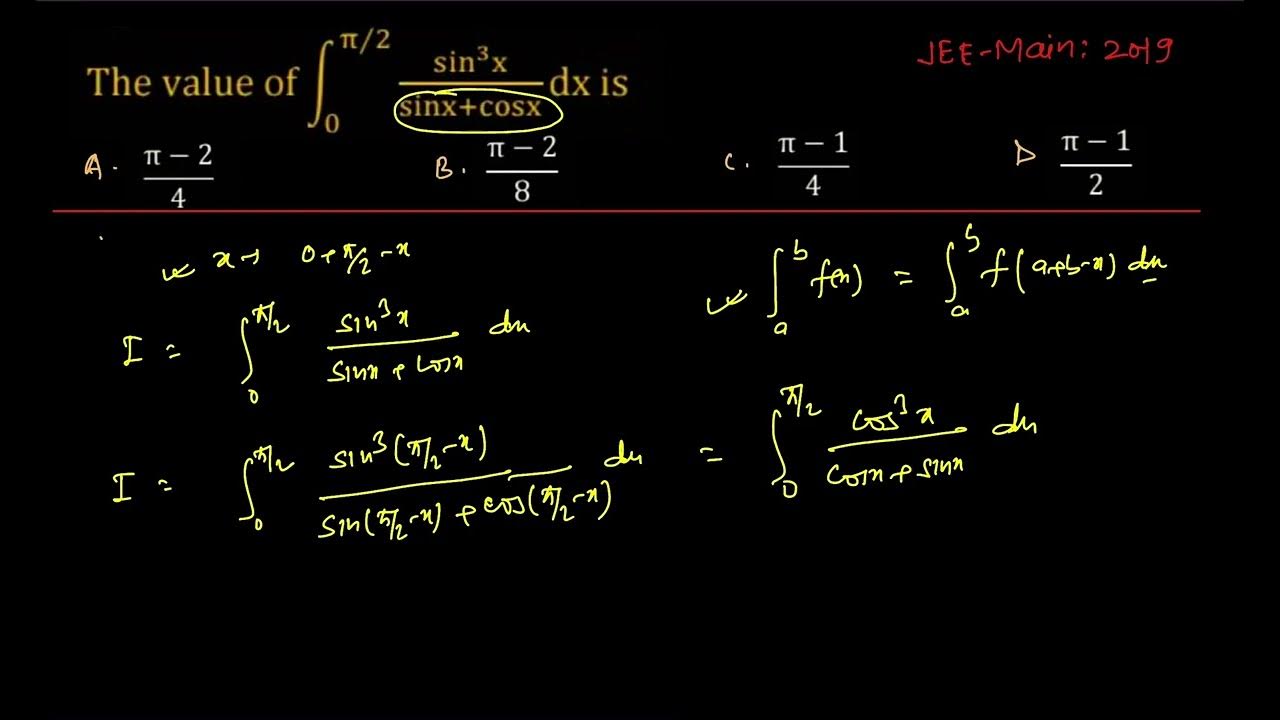 JEE-Main: 2019
The value of ∫₀^π/2 sin³x/(sinx+cosx) dx is
A. (π − 2)/4 B. (π − 2)/8 C. (π − 1)/4 D (π − 1)/2
x → 0+π/2−x
∫ₐᵇ f(x) = ∫ₐᵇ f(a+b−x) dx
I = ∫₀^π/2 sin³x/(sinx + cosx) dx
I = ∫₀^π/2 sin³(π/2−x)/(sin(π/2−x) + cos(π/2−x)) dx = ∫₀^π/2 cos³x/(cosx + sinx) dx